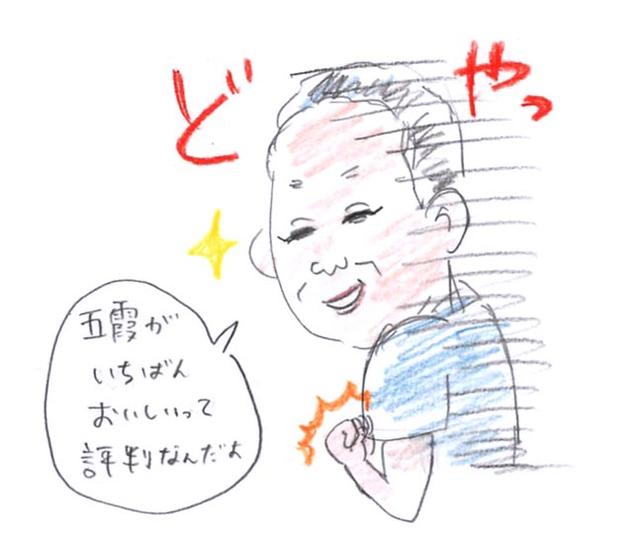 どやっ
五霞が
いちばん
おいしいって
評判なんだよ